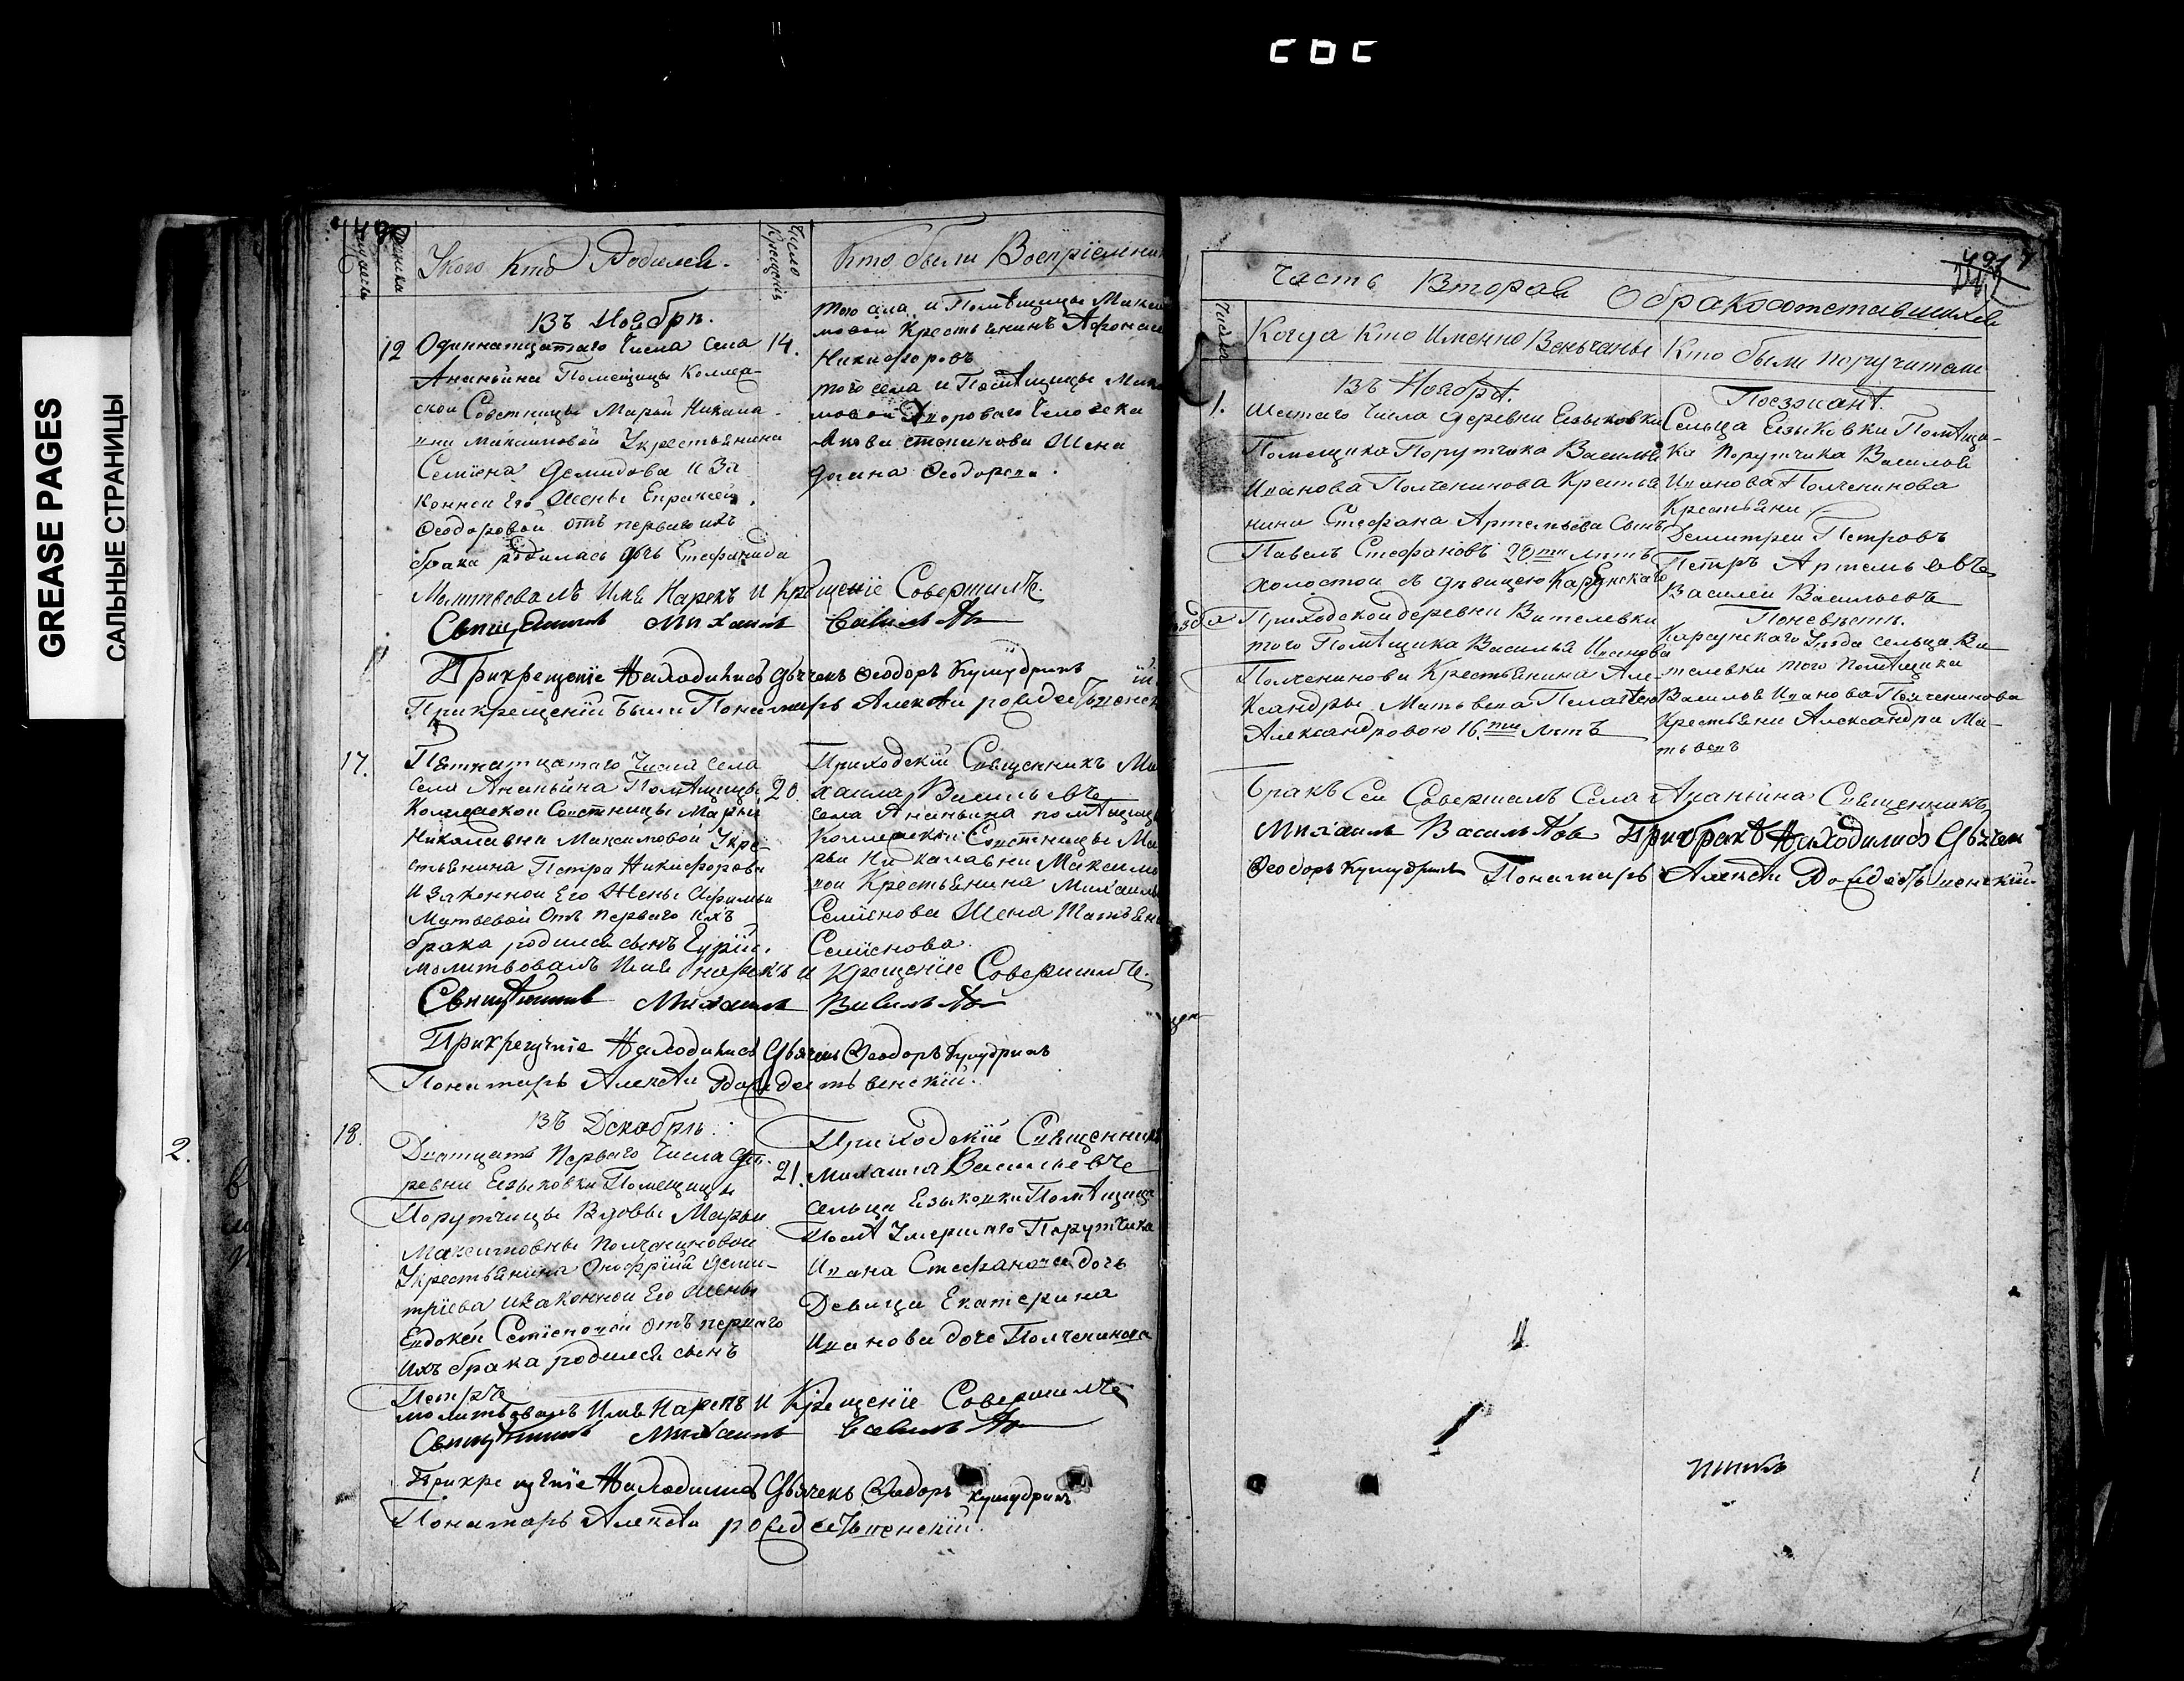 GREASE PAGES
САЛЬНЫЕ СТРАНИЦЫ
2.
490
У кого кто Родился.
Число Крещенія
Кто были Воспріемни
Въ Ноября.
12 Одиннатцатаго Числа Села
Ананьина Помещицы Коллеж-
ской Советницы Марьи Никола-
вни Максимовой У крестьянина
Семіона Демидова и За
конней Его Жены
Ѳеодоровой отъ перваго ихъ
брака родилась дочь Стефанида
14.
того села и Помѣщицы Макси
мовой Крестьянинъ Афонасей
Никифоровъ
того села и Помѣщицы Макси
мовой Дворового Человека
Жена
Ѳеодорова.
Молитвовалъ Имя Нарекъ и Крещеніе Совершилъ
Священникъ Михаилъ Васильевъ
При крещеніе Находились Дьячекъ Ѳеодоръ
При крещеніи были Понамарь Алексѣй рождественск
17.
Пятнатцатаго Числа села
села Ананьина Помѣщицы
Коллежской Советницы Марьи
Николавни Максимовой У кре-
стьянина Петра Никифорова
И Законной Его Жены Афимьи
Матвевой Отъ Перваго Ихъ
брака родился сынъ Гурій.
20.
Приходскій Священникъ Ми
хаила Васильевъ
села Ананьина помѣщицы
Коллежской Советницы Ма
рьи Николавни Максимо
вой Крестьянина Михаила
Семіонова Жена Татьяна
Семіонова.
молитвовалъ Имя нарекъ и Крещеніе Совершилъ.
Священникъ Михаилъ Васильевъ
При крещеніе Находились Дьячекъ Ѳеодоръ
Понамарь Алексѣй Рождественскій.
18.
Въ Декабрь.
Дватцать Перваго Числа де-
ревни Езыковки Помещицы
Порутчицы Вдовы Марьи
Максимовны Полчениновой
У крестьянина Онофрій Деми-
тріева И Законной Его Жены
Евдокеи Семіоновой Отъ перваго
Ихъ брака родился сынъ
Петръ
21.
Приходскій Священникъ
Михаила Васильевъ
сельца Езыковки Помѣщица
Послѣ Умершаго Порутчика
Ивана Стефанова дочь
Девица Екатерина
Иванова дочь Полченинова
молитвовалъ Имя Нарекъ И Крещеніе Совершилъ
Священникъ Михаилъ Васильевъ
При крещеніе Находились Дьячекъ Ѳеодоръ
Понамарь Алексѣй рождественскій.
491
Часть Вторая О бракосочетавшихся
Числа
Когда Кто Именно Веньчаны
Кто были Поручители
Въ Ноября.
1. Шестаго Числа деревни Езыковки
Помещика Порутчика Василья
Иванова Полченинова Крестья
нина Стефана Артемьева Сынъ
Павелъ Стефановъ 20ти лѣтъ
холостой съ девицею Карсунскаго
Приходской деревни Вителевки
того Помѣщика Василья Иванова
Полченинова Крестьянина Але-
ксандры Матвева Пелагею
Александровою 16ти лѣтъ
Поезжанѣ.
Сельца Езыковки Помѣщи-
ка Порутчика Василья
Иванова Полченинова
Крестьяни
Демитрей Петровъ
Петръ Артемьевъ
Василей Васильевъ
По невѣсте.
Карсунскаго Уезда сельца Ви-
телевки того Помѣщика
Василья Иванова Полченинова
Крестьяни Александра Ма-
твевъ
Бракъ Сей Совершалъ Села Ананьина Священникъ
Михаилъ Васильевъ При бракѣ Находились Дьячекъ
Ѳеодоръ Понамарь Алексѣй Рождественскій.